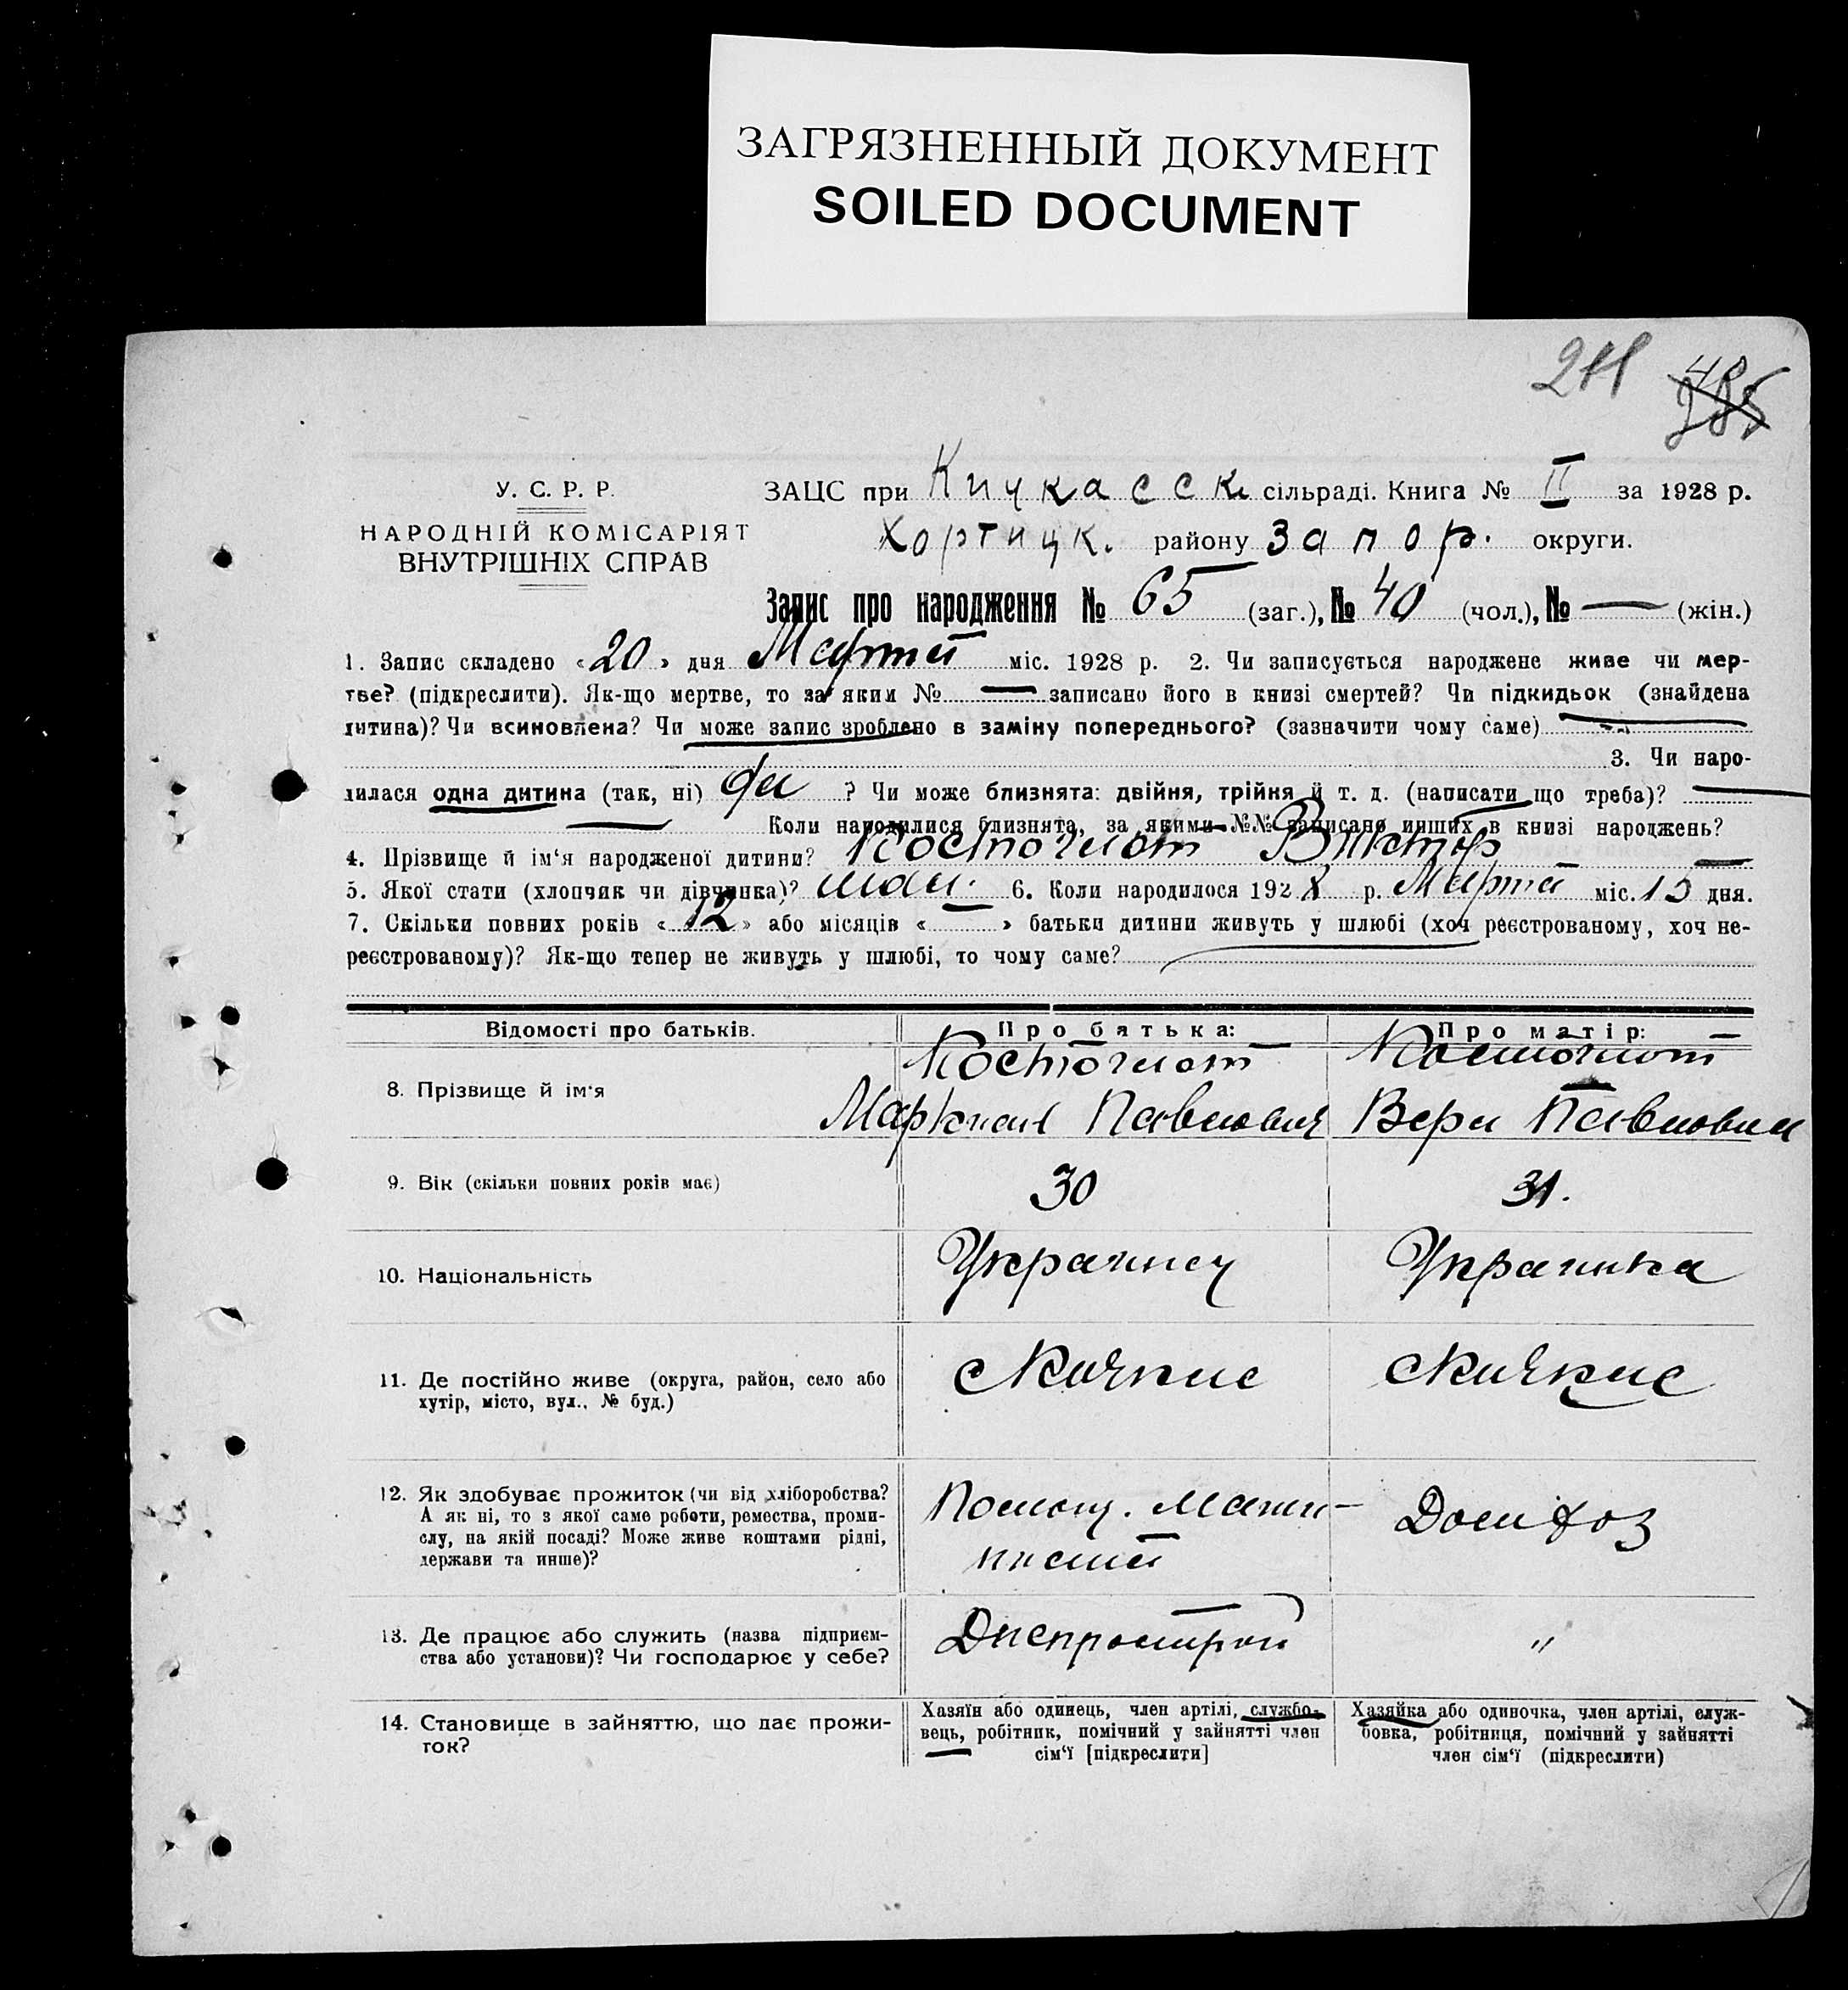 ЗАГРЯЗНЕННЫЙ ДОКУМЕНТ
SOILED DOCUMENT
211
У. С. Р. Р.
НАРОДНІЙ КОМІСАРІЯТ
ВНУТРІШНІХ СПРАВ
ЗАЦС при Кичкасск сільраді. Книга № II за 1928 р.
Хортицк. району Запор. округи.
Запис про народження № 65 (заг.), № 40 (чол.), № — (жін.)
1. Запис складено «20» дня Марта міс. 1928 р. 2. Чи записується народжене живе чи мер-
тве? (підкреслити). Як-що мертве, то за яким № — записано його в книзі смертей? Чи підкидьок (знайдена
дитина)? Чи всиновлена? Чи може запис зроблено в заміну попереднього? (зазначити чому саме)
3. Чи наро-
дилася одна дитина (так, ні) да ? Чи може близнята: двійня, трійня й т. д. (написати що треба)? —
— Коли народилися близнята, за якими №№ записано инших в книзі народжень?
4. Прізвище й ім‘я народженої дитини? Костоглот Виктор —
5. Якої стати (хлопчик чи дівчинка)? мал. 6. Коли народилося 1928 р. Марта міс. 15 дня.
7. Скільки повних років «12» або місяців «—» батьки дитини живуть у шлюбі (хоч реєстрованому, хоч не-
реєстрованому)? Як-що тепер не живуть у шлюбі, то чому саме?
Відомості про батьків. Про батька: Про матір:
8. Прізвище й ім‘я Костоглот Костоглот
Павлович Вера Павловна
9. Вік (скільки повних років має) 30 31.
10. Національність Украинец Украинка
11. Де постійно живе (округа, район, село або
хутір, місто, вул., № буд.) с Кичкас с Кичкас
12. Як здобуває прожиток (чи від хліборобства?
А як ні, то з якої саме роботи, ремества, проми-
слу, на якій посаді? Може живе коштами рідні,
держави та инше)? Помощ. Маши-
ниста Домихоз
13. Де працює або служить (назва підприєм-
ства або установи)? Чи господарює у себе? Днепрострой "
14. Становище в зайняттю, що дає прожи-
ток?
Хазяїн або одинець, член артілі, службо-
вець, робітник, помічний у зайнятті член
сім‘ї [підкреслити]
Хазяйка або одиночка, член артілі, служ-
бовка, робітниця, помічний у зайнятті
член сім‘ї (підкреслити)